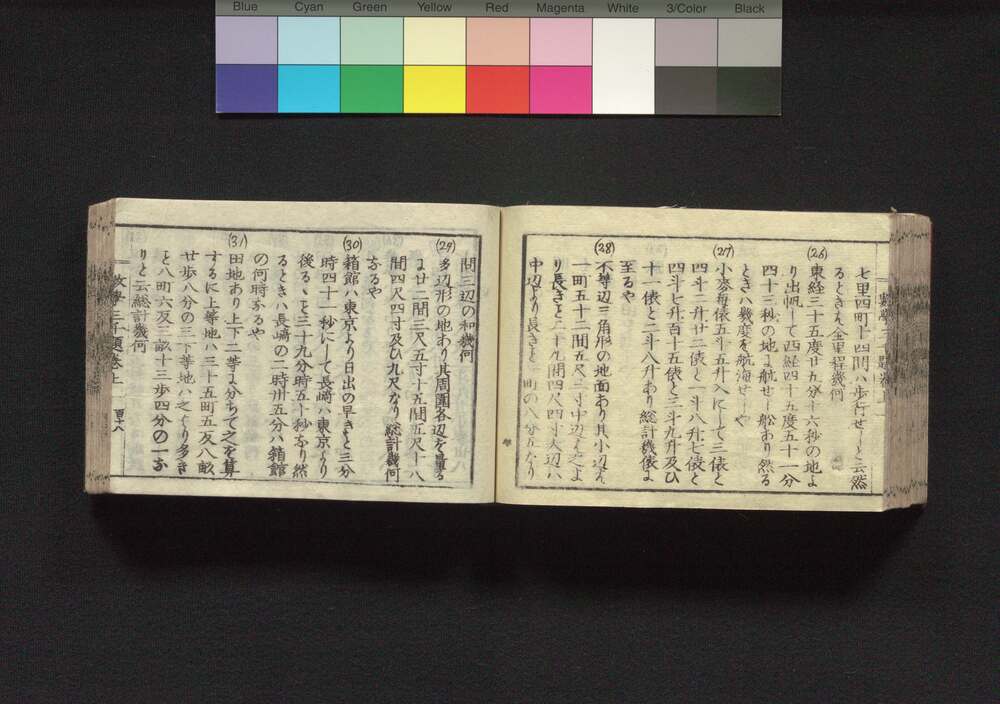 Blue Cyan Green Yellow Red Magenta White 3/Color Black
七里四町十四間ハ歩行せしと云然
るときハ全里程幾何
(26)
東経三十五度廿九分十六秒の地よ
り出帆して西経四十五度五十一分
四十三秒の地に航せし船あり然る
ときハ幾度を航海せしや
(27)
小麥毎俵五斗五升入にして三俵と
四斗二升廿二俵と一斗八升七俵と
四斗七升百十五俵と三斗九升及ひ
十一俵と二斗八升あり総計幾俵に
至るや
(28)
不等辺三角形の地面あり其小辺ハ
一町五十二間五尺二寸中辺ハ之よ
り長きと二十九間四尺四寸大辺ハ
中辺より長きと一町の八分五なり
問三辺の和幾何
(29)
多辺形の地あり其周圍各辺を量る
に廿二間三尺五寸十五間五尺十八
間四尺四寸及ひ九尺なり総計幾何
なるや
(30)
箱館ハ東京より日出の早きと三分
時四十一秒にして長崎ハ東京より
後るゝと三十九分時五十秒なり然
るときハ長崎の二時卅五分ハ箱館
の何時なるや
(31)
田地あり上下二等に分ちて之を算
するに上等地ハ三十五町五反八畝
廿歩八分の三下等地ハ之より多き
と八町六反三畝十三歩四分の一な
りと云総計幾何
数學三千題巻上
百十八